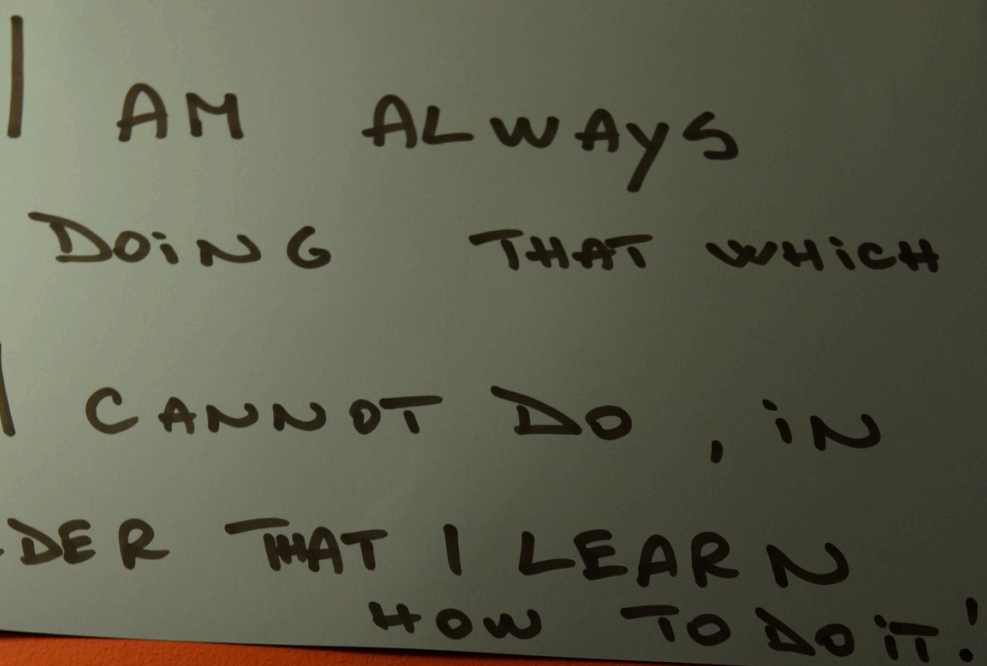 I AM ALWAYS
DOiNG THAT WHiCH
I CANNOT DO, iN
DER THAT I LEARN
HOW TO DO iT!